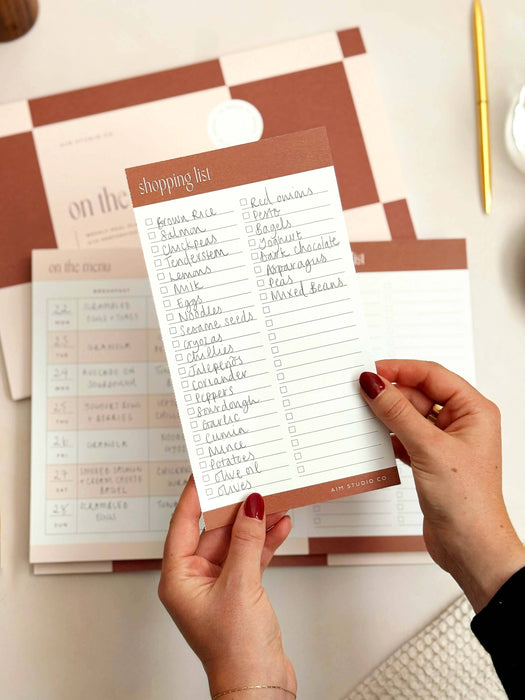 AIM STUDIO CO.
on the
shopping list
Brown Rice
Salmon
Chickpeas
Tenderstem
Lemons
Milk
Eggs
Noodles
Sesame seeds
Gyozas
Chillies
Jalepeños
Coriander
Peppers
Sourdough
Garlic
Cumin
Mince
Potatoes
Olive oil
Olives
Red onions
Pesto
Bagels
Yoghurt
Dark chocolate
Asparagus
Peas
Mixed Beans
AIM STUDIO CO.
on the menu
BREAKFAST
22 MON
SCRAMBLED
EGGS + TOAST
23 TUE
GRANOLA
24 WED
AVOCADO ON
SOURDOUGH
25 THUR
YOGHURT BOWL
+ BERRIES
26 FRI
GRANOLA
NOODLE
27 SAT
SMOKED SALMON
+ CREAM CHEESE
BAGEL
CHICKEN
28 SUN
SCRAMBLED
EGGS
list